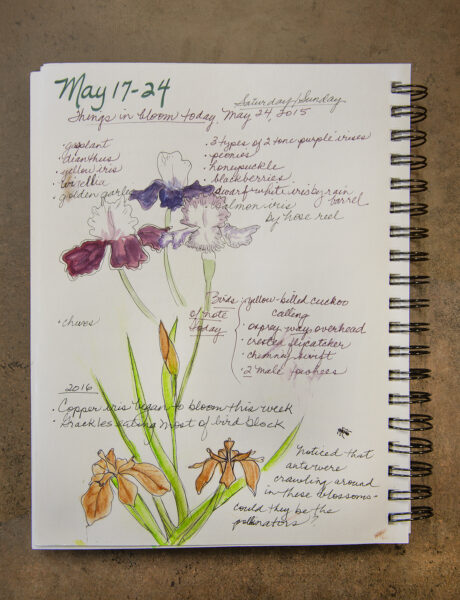 May 17-24
Saturday/Sunday
Things in bloom today, May 24, 2015
· dianthus
· yellow iris
· golden garlic
· chives
· 3 types of 2 tone purple irises
· peonies
· honeysuckle
· blackberries
· dwarf white iris by rain barrel
· salmon iris
by hose reel
Birds of note today
· yellow-billed cuckoo
calling
· osprey way overhead
· crested flycatcher
· chimney swift
· 2 male towhees
2016
· Copper iris began to bloom this week
· Grackles eating most of bird block
noticed that
ants were
crawling around
in these blossoms -
could they be the
pollinators?